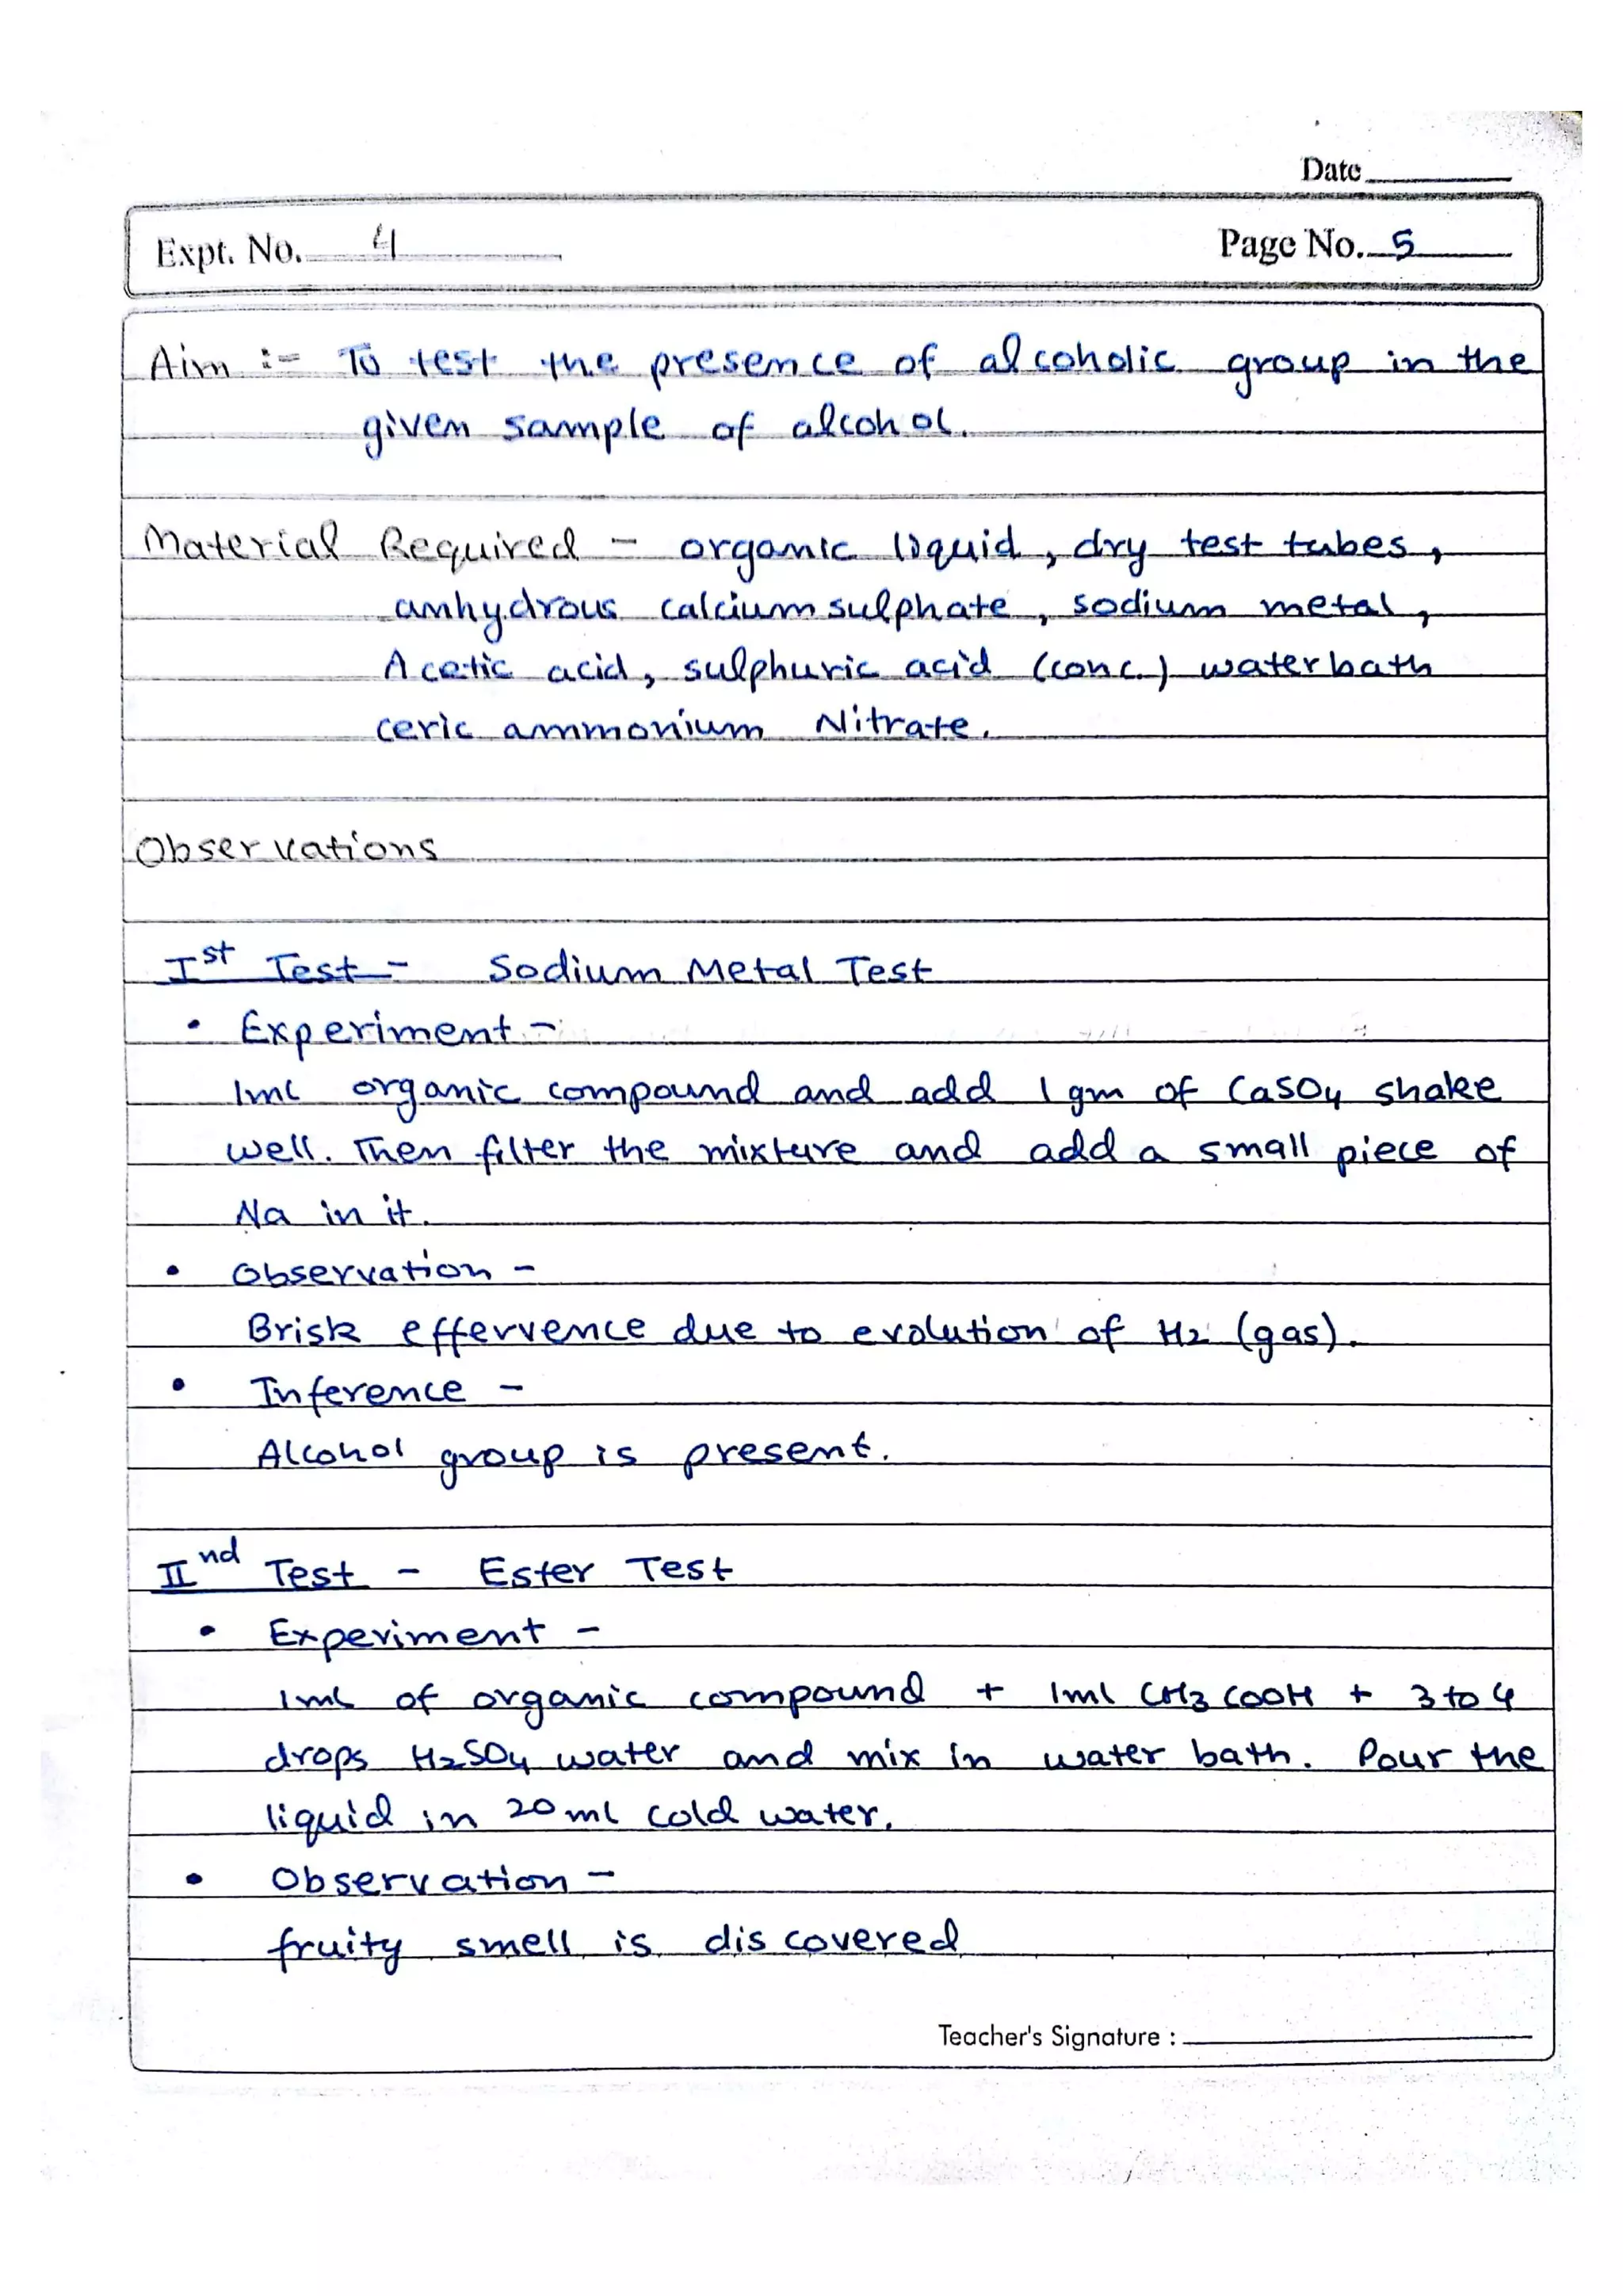 Date
Expt. No. 4
Page No. 5
Aim :- To test the presence of alcoholic group in the
given sample of alcohol.
Material Required - organic liquid, dry test tubes,
anhydrous calcium sulphate, sodium metal,
Acetic acid, sulphuric acid (conc.) water bath
ceric ammonium Nitrate.
Observations
Ist Test - Sodium Metal Test
• Experiment -
1ml organic compound and add 1 gm of CaSO4 shake
well. Then filter the mixture and add a small piece of
Na in it.
• Observation -
Brisk effervence due to evolution of H2 (gas).
• Inference -
Alcohol group is present.
IInd Test - Ester Test
• Experiment -
1ml of organic compound + 1ml CH3COOH + 3 to 4
drops H2SO4 water and mix in water bath. Pour the
liquid in 20 ml cold water.
• Observation -
fruity smell is discovered
Teacher's Signature :